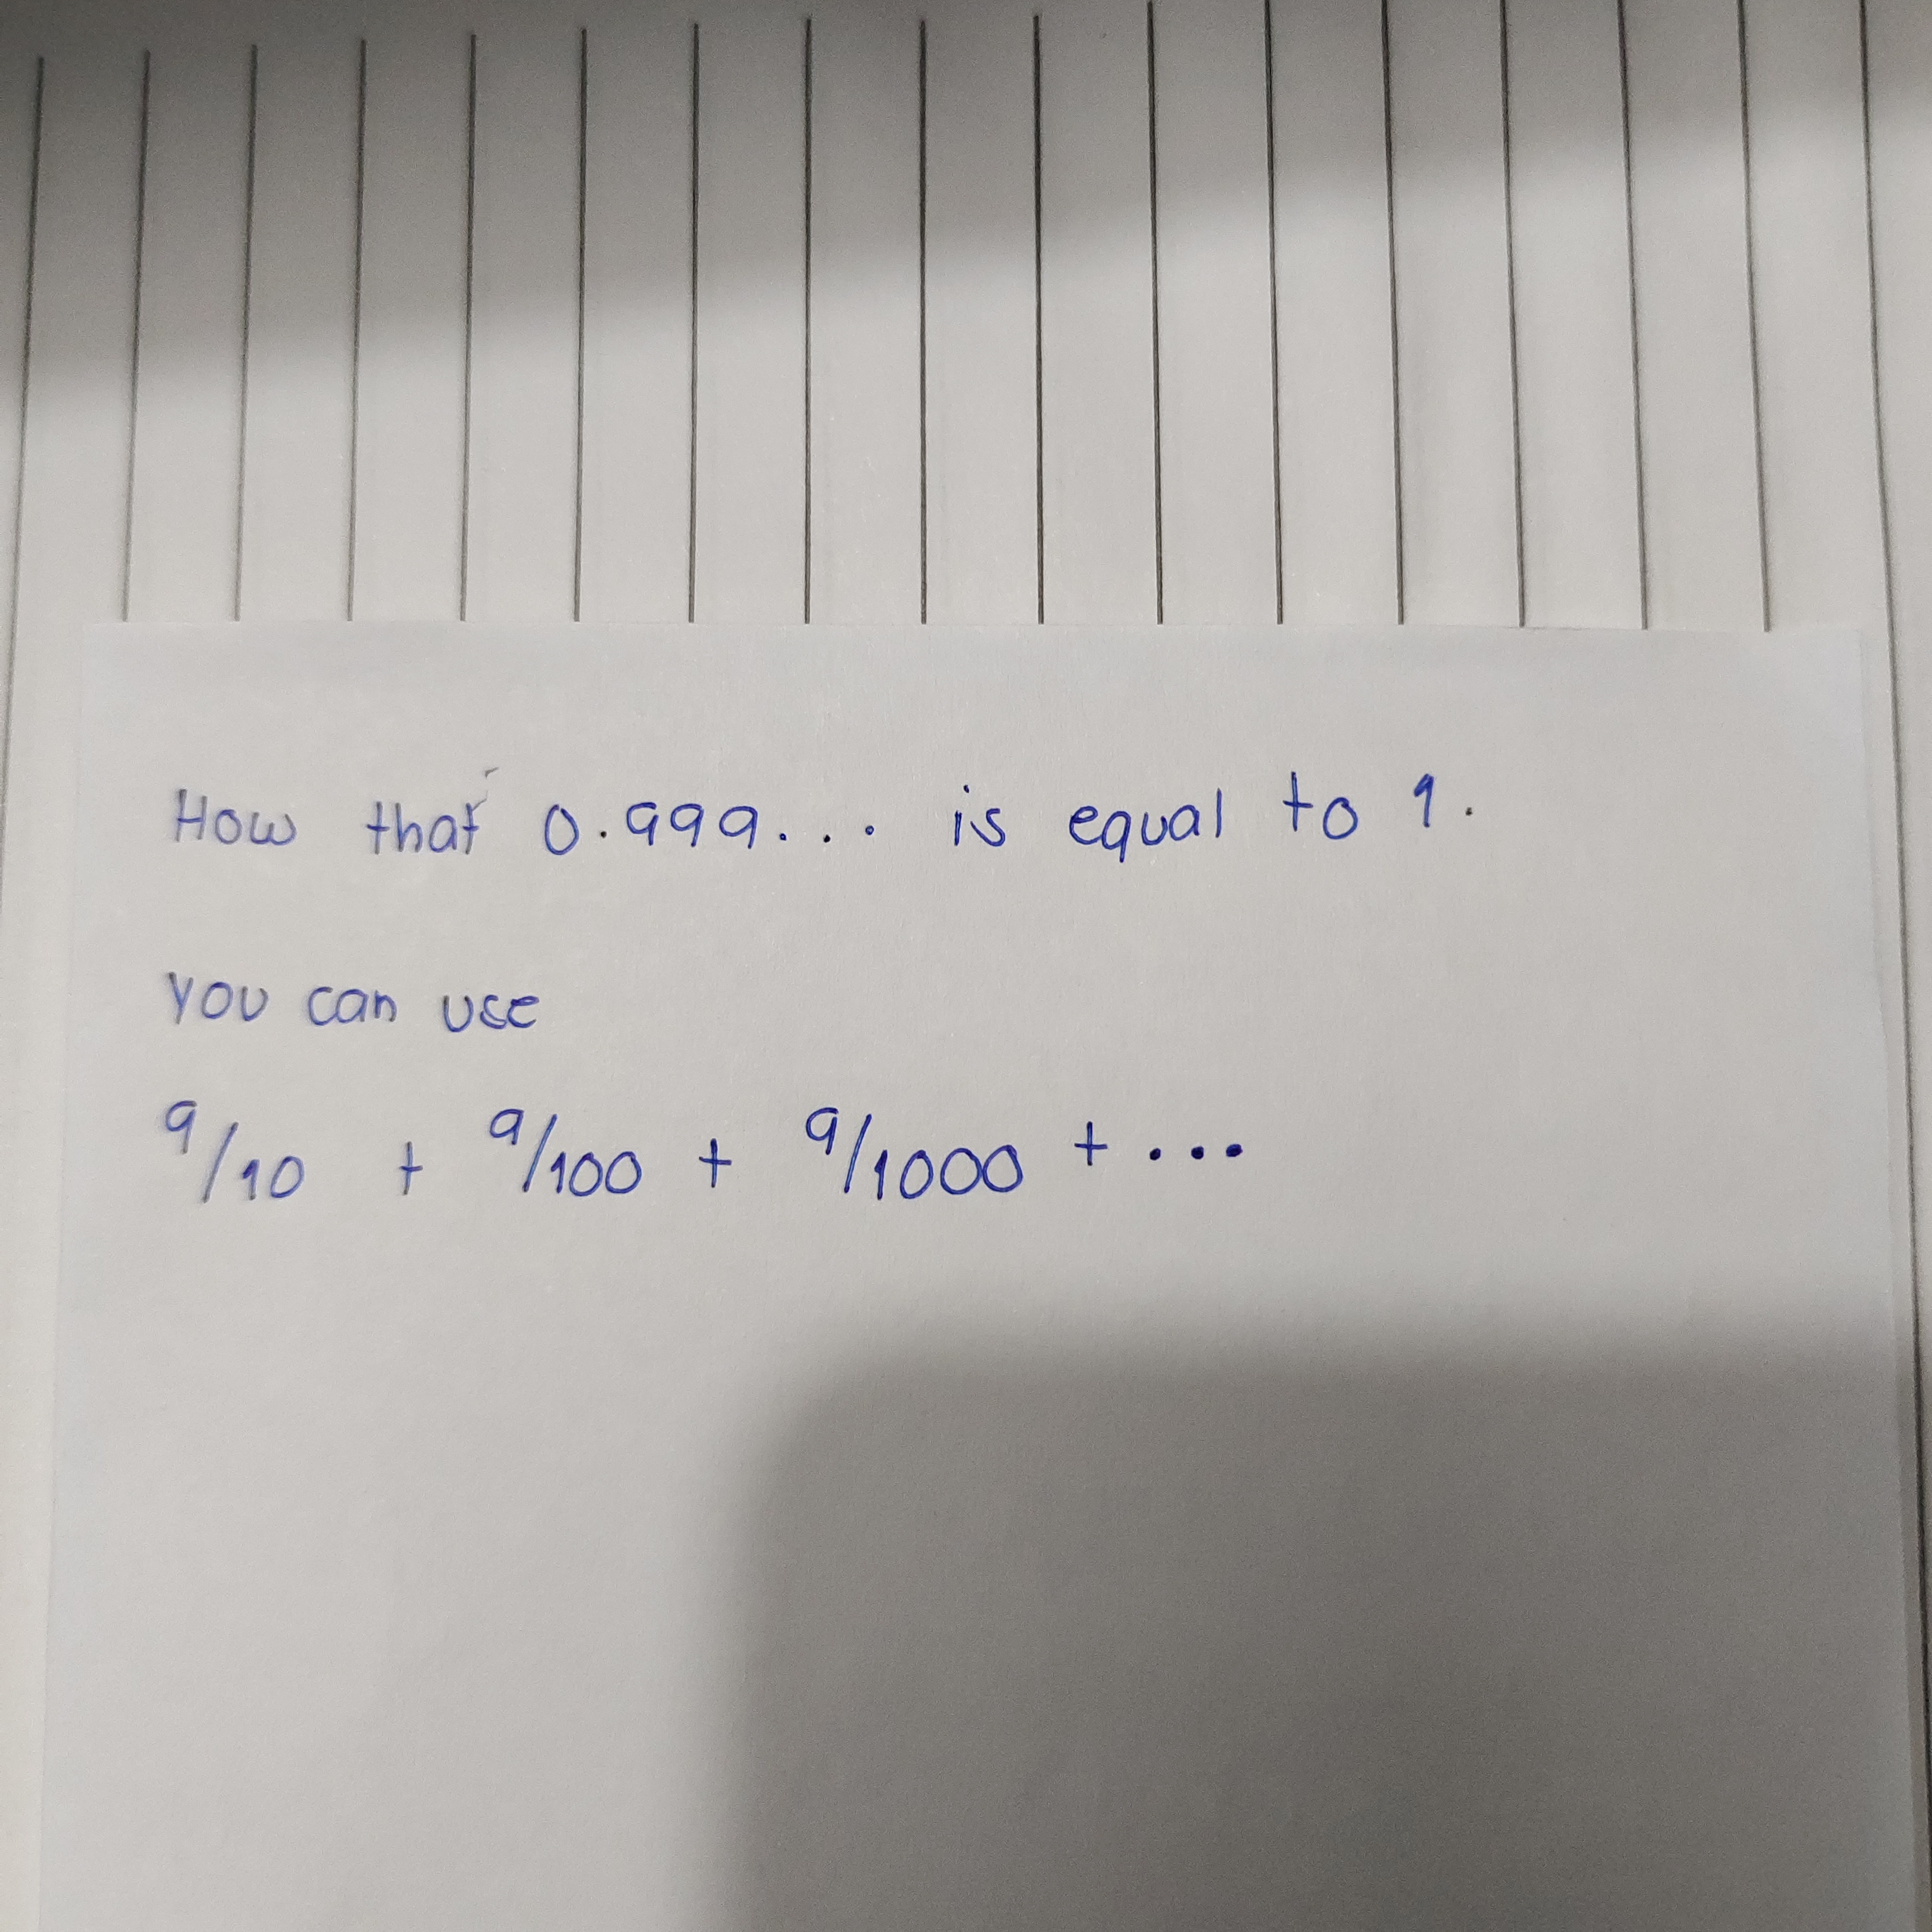 How that 0.999... is equal to 1.
you can use
9/10 + 9/100 + 9/1000 + ...